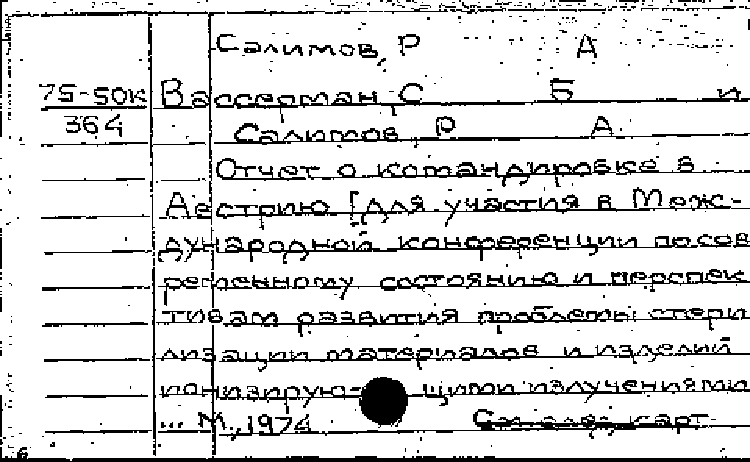 Салимов, Р А
75-50к Вассерман, С Б и
364 Салимов, Р А.
Отчет о командировке в
Австрию [для участия в Меж-
дународной конференции по сов
ременному состоянию и перспек
тивам развития проблемы стери
лизации материалов и изделий
ионизирую- щими излучениями
... М., 1974 См. след. карт.
6